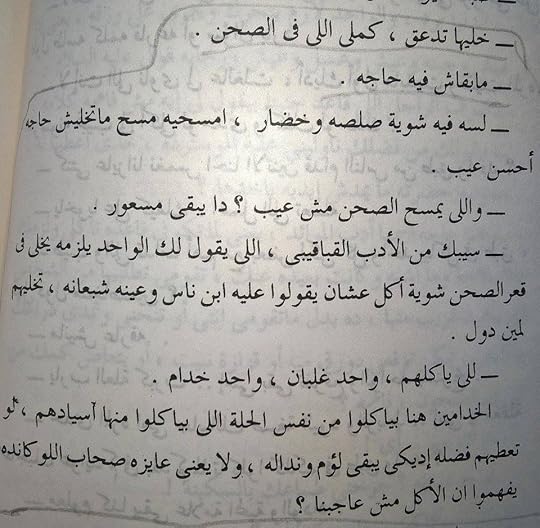 ـ خليها تدعق ، كملى اللى فى الصحن .
ـ مابقاش فيه حاجه .
ـ لسه فيه شوية صلصه وخضار ، امسحيه مسح ماتخليش حاجه
أحسن عيب .
ـ واللى يمسح الصحن مش عيب ؟ دا يبقى مسعور .
ـ سيبك من الأدب القباقيبى ، اللى يقول لك الواحد يلزمه يخلى فى
قعر الصحن شوية أكل عشان يقولوا عليه ابن ناس وعينه شبعانه ، تخليهم
لمين دول .
ـ للى ياكلهم ، واحد غلبان ، واحد خدام .
الخدامين هنا بياكلوا من نفس الحلة اللى بياكلوا منها آسيادهم ، لو
تعطيهم فضله إديكى يبقى لؤم ونداله ، ولا يعنى عايزه صحاب اللوكانده
يفهموا ان الأكل مش عاجبنا ؟